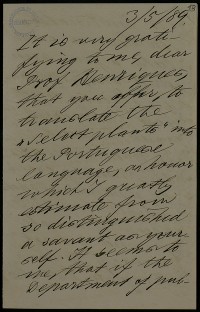 3/5/89.
It is very grati-
fying to me, dear
Prof Henriques,
that you offer, to
translate the
„select plants" into
the Portuguese
language, an honor
which I greatly
estimate from
so distinguished
a savant as your-
self. It seems to
me, that if the
Department of pub-